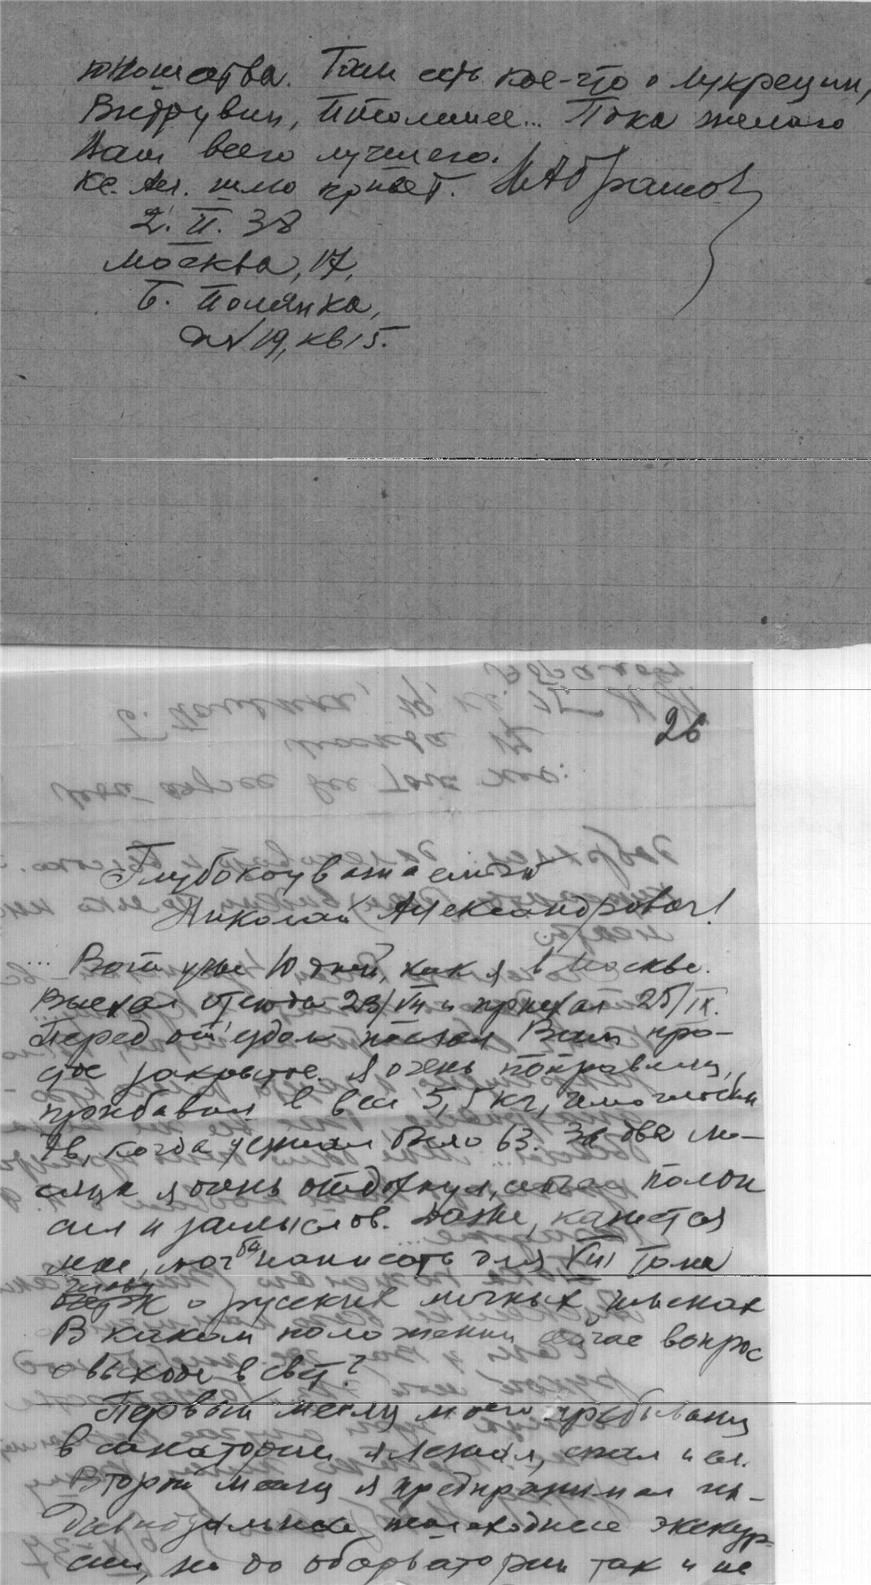 юношества. Там есть кое-что о Лукреции,
Витрувии, Птолемее... Пока желаю
Вам всего лучшего.
Кс. Ал. шлю привет. ИАбрамов
2. II. 38
Москва, 17,
Б. Полянка,
д N 19, кв 15.
26
Глубокоуважаемый
Николай Александрович!
... Вот уже 10 дней, как я в Москве.
Выехал отсюда 23/VII и приехал 25/IX.
Перед от'ездом послал Вам про-
стое закрытое. Я очень поправился,
прибавил в весе 5,5 кг,
когда уезжал было 63. За два ме-
сяца я очень отдохнул, сейчас полон
сил и замыслов. Даже, кажется
мне, мог бы написать для VIII тома
главу о русских личных именах
В каком положении сейчас вопрос
о выходе в свет?
Первый месяц моего пребывания
в санатории я лежал, спал и ел.
Второй месяц я предпринимал ин-
дивидуальные пешеходные экскур-
сии, но до обсерватории так и не